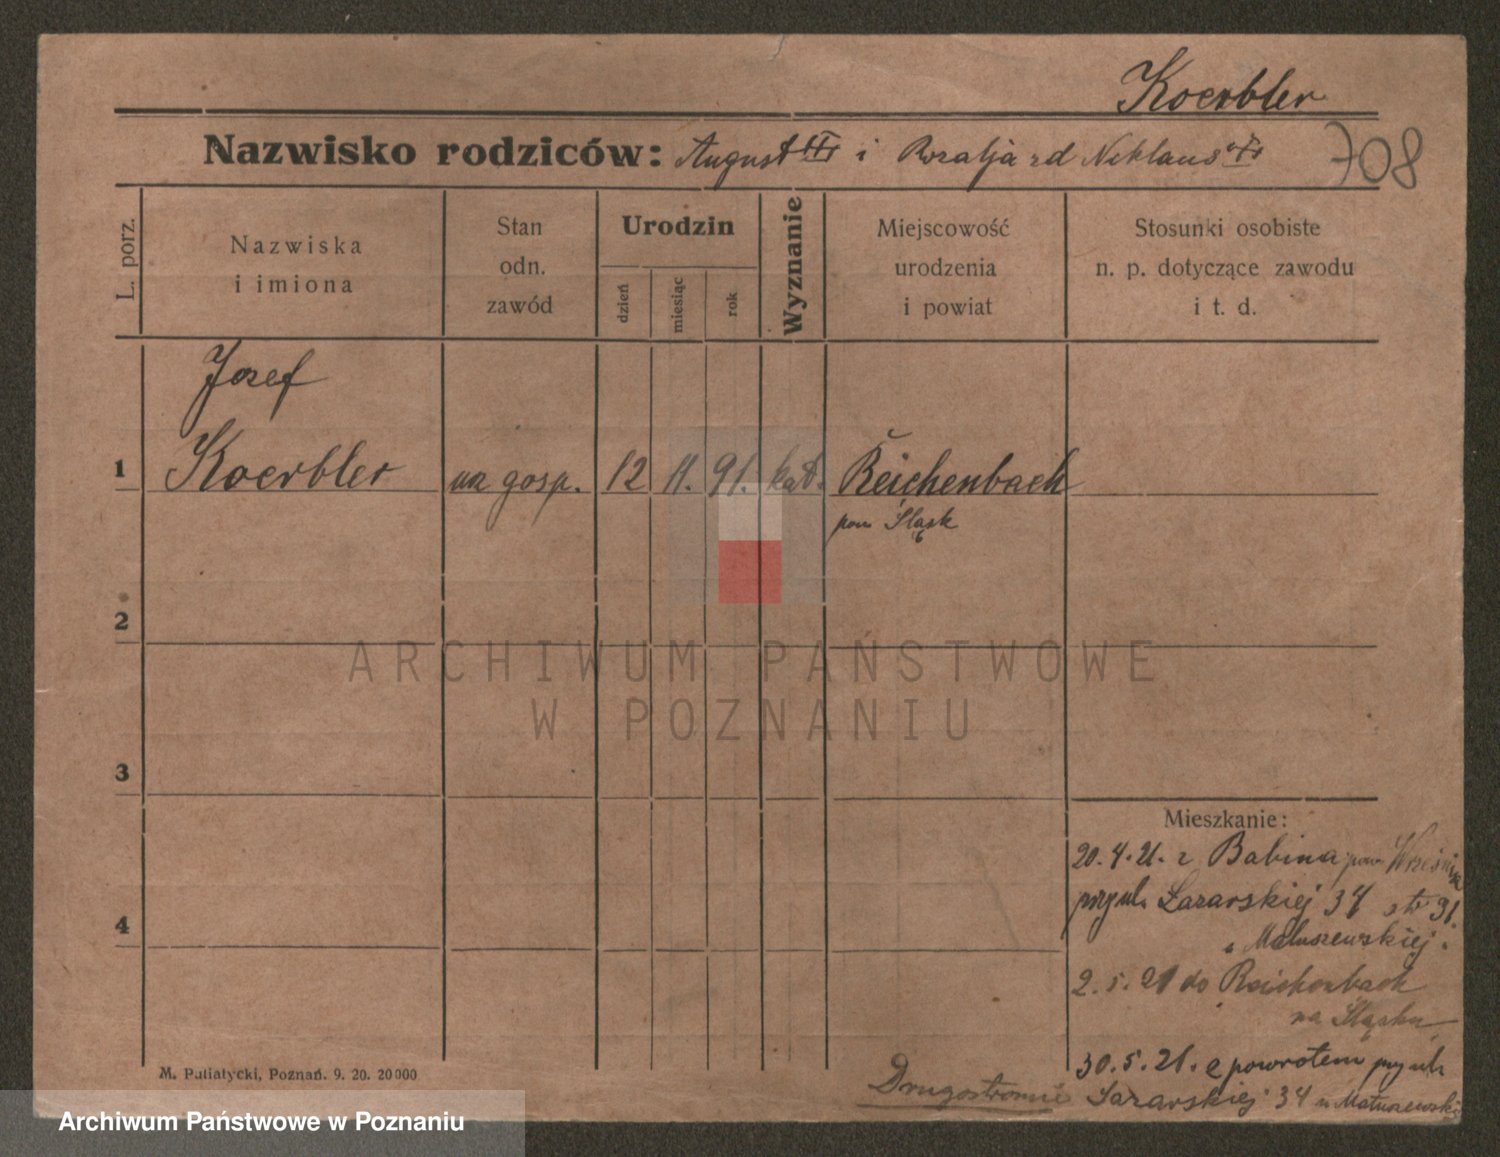 Koerbler
Nazwisko rodziców: August i Rozalja zd Neklaus
708
L. porz.
Nazwiska
i imiona
Stan
odn.
zawód
Urodzin
dzień
miesiąc
rok
Wyznanie
Miejscowość
urodzenia
i powiat
Stosunki osobiste
n. p. dotyczące zawodu
i t. d.
Jozef
1 Koerbler na gosp. 12 11. 91. kat. Reichenbach
pow Śląsk
2
ARCHIWUM PAŃSTWOWE
W POZNANIU
3
Mieszkanie:
20.4.21. z Babina pow Września
przy ul. Łazarskiej 34
u Matuszewskiej.
4
2.5.21 do Reichenbach
na Śląsku
30.5.21. z powrotem przy ul.
Łazarskiej 34 u Matuszewskiej
Drugostronnie
M. Putiatycki, Poznań. 9. 20. 20000
Archiwum Państwowe w Poznaniu